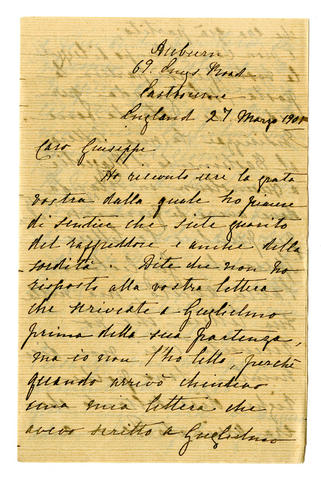 Auburn
69. Road
Eastbourne
England 27 Marzo 1901
Caro Giuseppe
Ho ricevuto ieri la grata
vostra dalla quale ho piacere
di sentire che siete guarito
del raffreddore e anche della
sordità. Dite che non ho
risposto alla vostra lettera
che scriveste a Guglielmo
prima della sua partenza,
ma io non l'ho letta, perchè
quando arrivò chiudevo
una mia lettera che
avevo scritto a Guglielmo